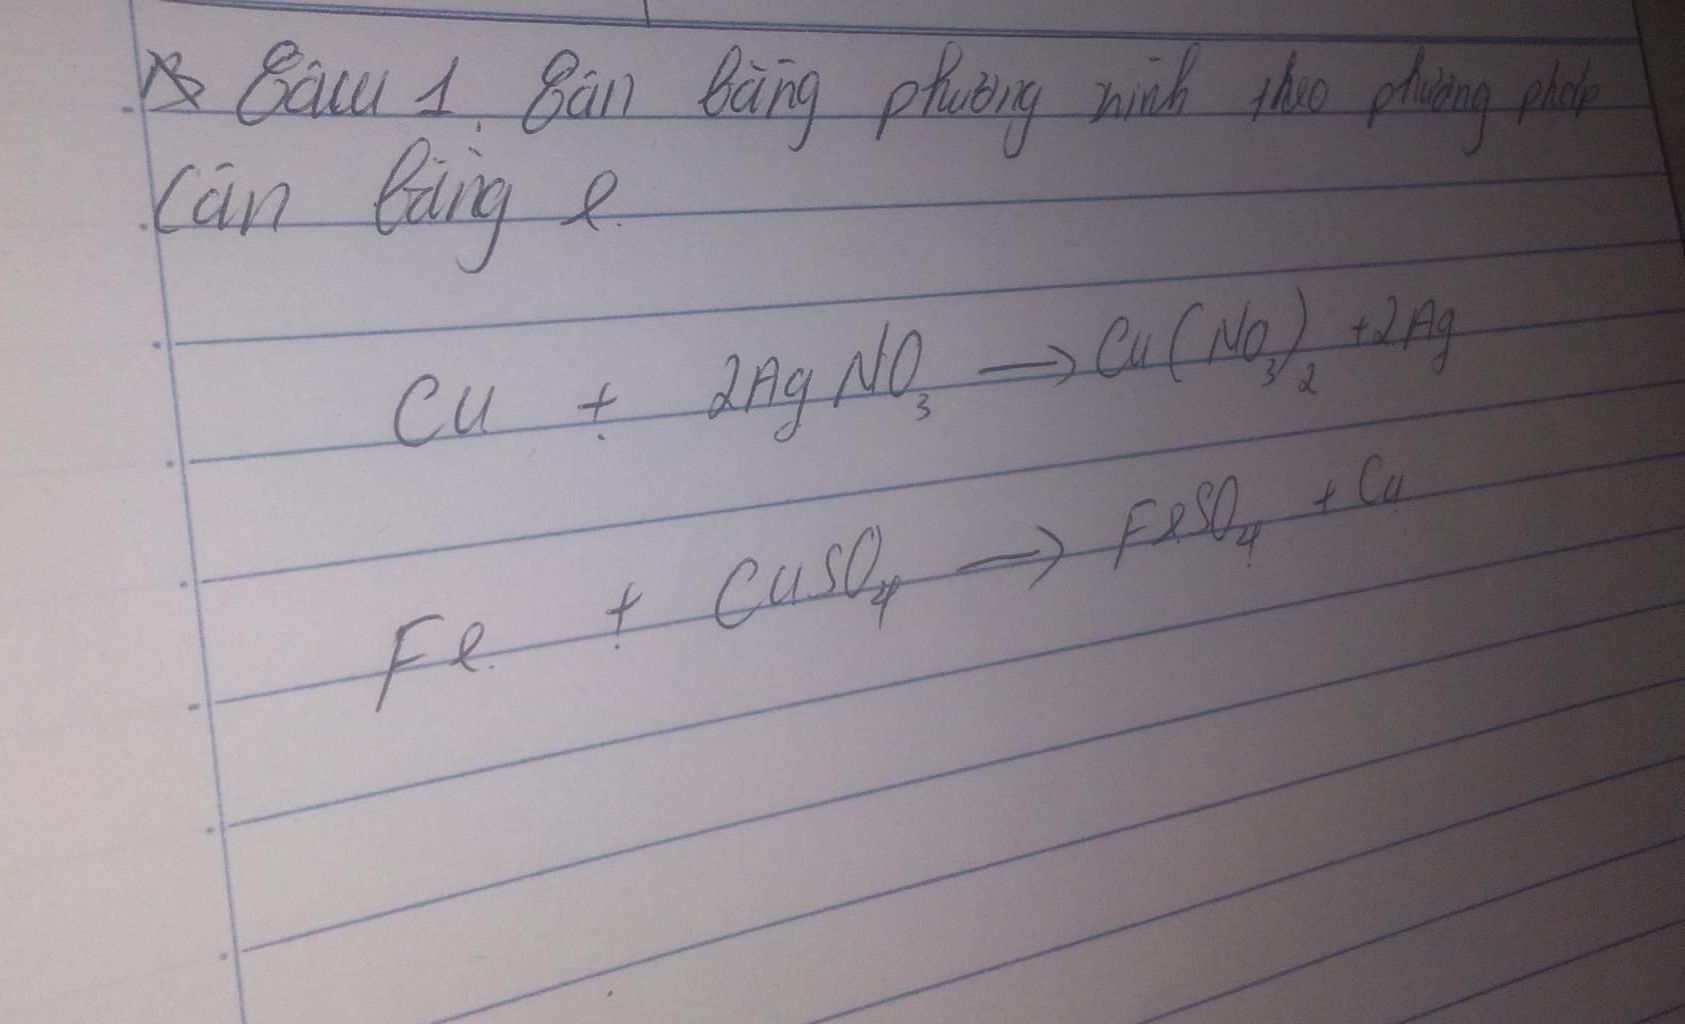 Câu 1. Cân bằng phương trình theo phương pháp
cân bằng e.
Cu + 2AgNO₃ → Cu(NO₃)₂ + 2Ag
Fe + CuSO₄ → FeSO₄ + Cu